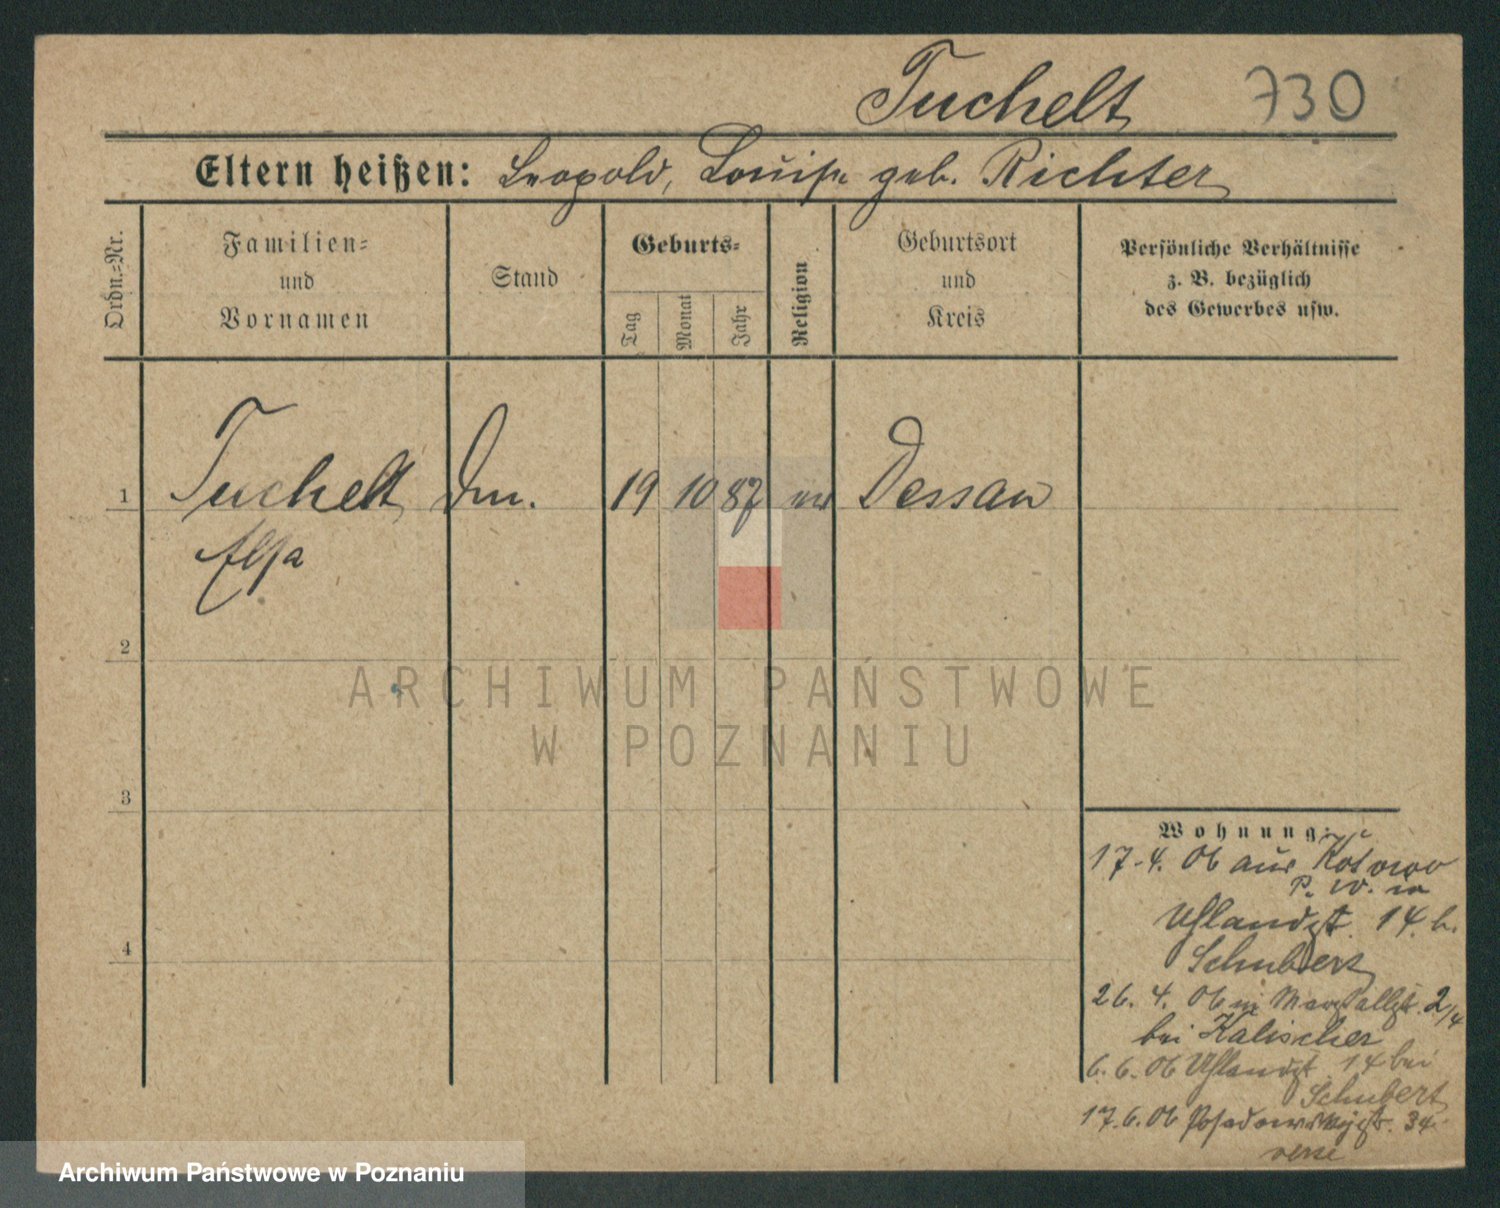 Tuchelt 730
Eltern heißen: Leopold, Louise geb. Richter
Ordn.=Nr.
Familien=
und
Vornamen
Stand
Geburts=
Tag
Monat
Jahr
Religion
Geburtsort
und
Kreis
Persönliche Verhältnisse
z. B. bezüglich
des Gewerbes usw.
1 Tuchelt 19 10 87 Dessau
Elsa
2
3
4
ARCHIWUM PAŃSTWOWE
W POZNANIU
Wohnung:
17.4.06 aus
Uhlandst. 14 b.
Schubert
26.4.06 in Marstallst. 2/4
bei Kalischer
6.6.06 Uhlandst 14 bei
Schubert
17.6.06 34
Archiwum Państwowe w Poznaniu